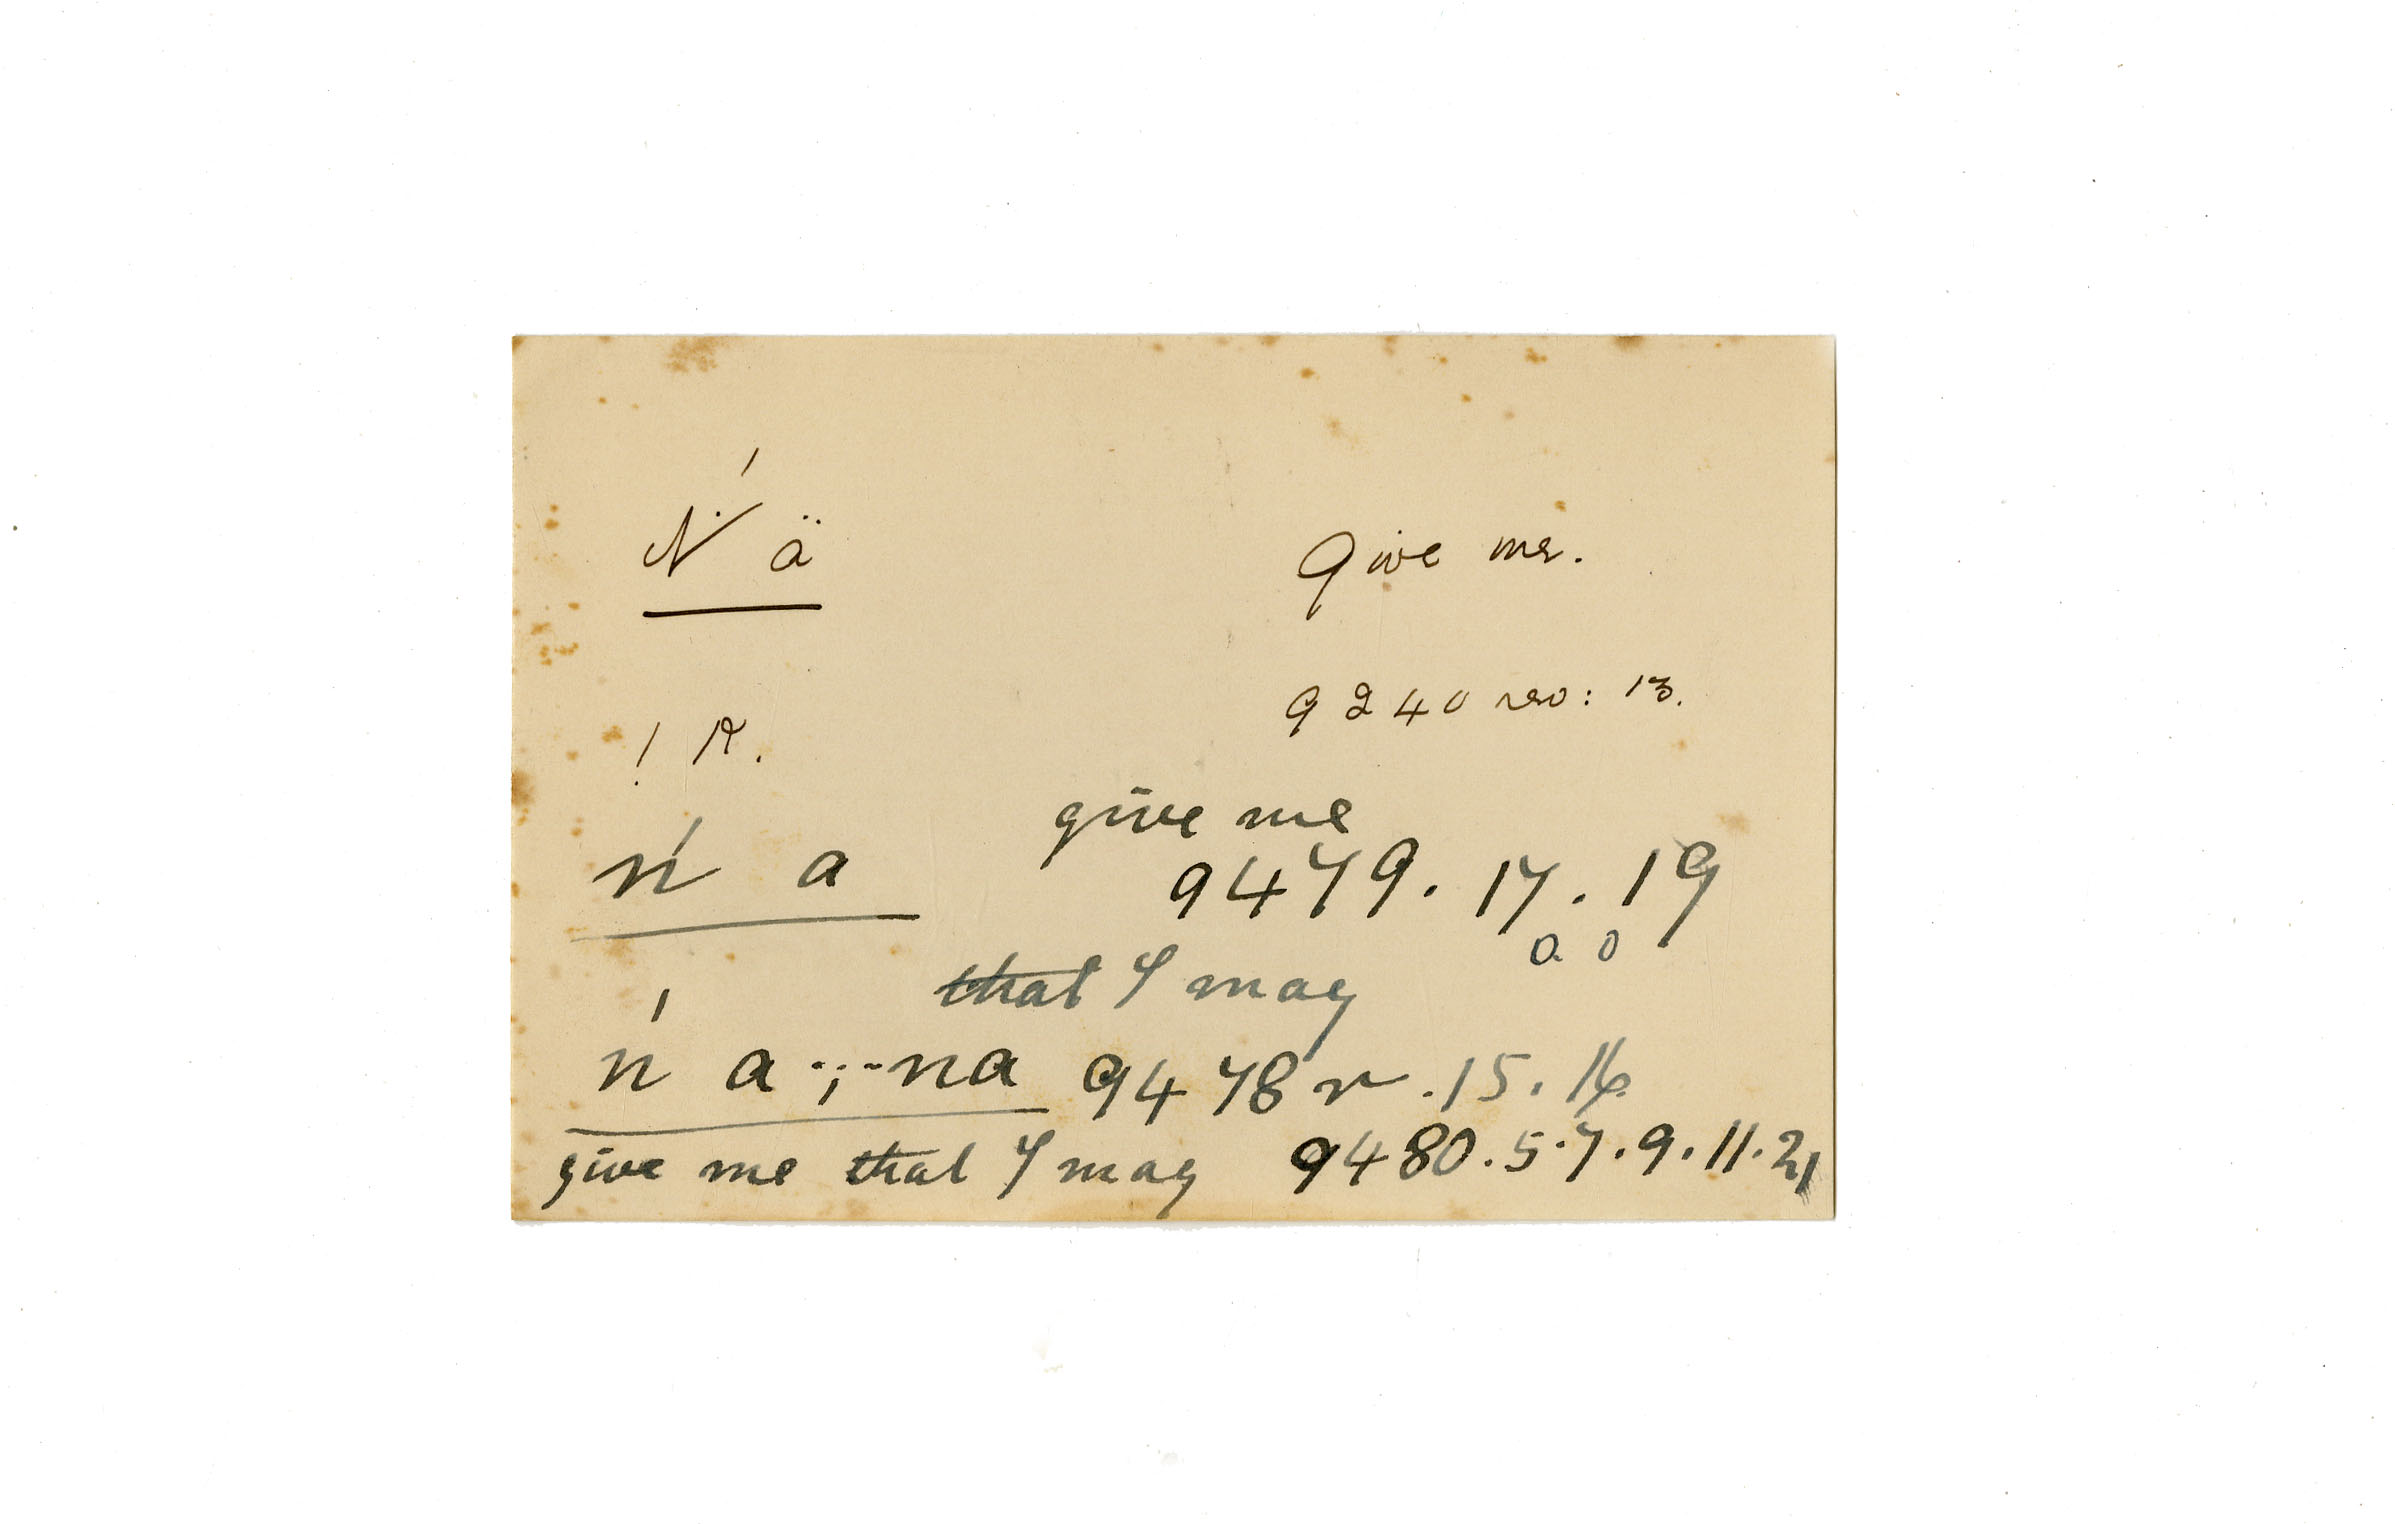 Ń ä Give me.
! K. 9240 rev: 13.
give me
ń a 9479. 17. 19
a. 0
that I may
ń a -;- na 9478 r. 15. 16.
give me that I may 9480. 5. 7. 9. 11. 21